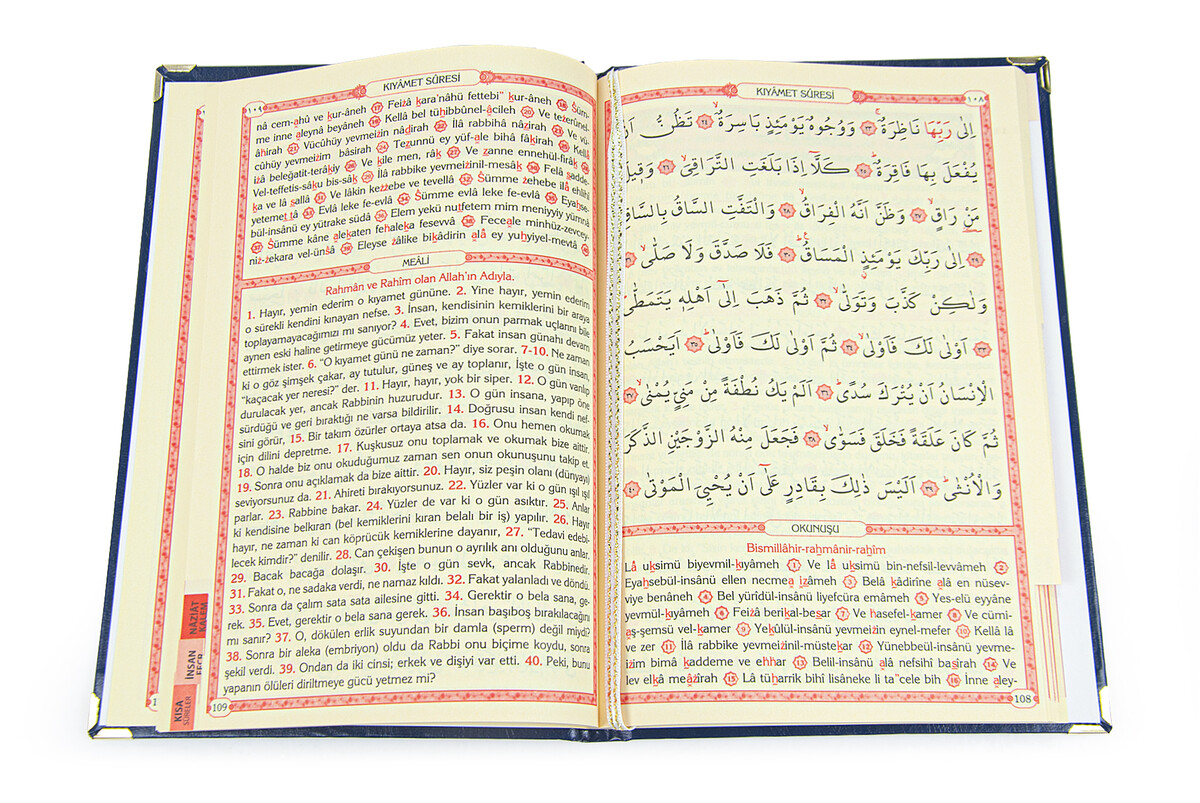 KIYÂMET SÛRESİ
١٠٨
اِلٰى رَبِّهَا نَاظِرَةٌۚ ﴿٢٣﴾ وَوُجُوهٌ يَوْمَئِذٍ بَاسِرَةٌۙ ﴿٢٤﴾ تَظُنُّ اَنْ
يُفْعَلَ بِهَا فَاقِرَةٌۜ ﴿٢٥﴾ كَلَّٓا اِذَا بَلَغَتِ التَّرَاقِيَۙ ﴿٢٦﴾ وَقٖيلَ
مَنْ رَاقٍۙ ﴿٢٧﴾ وَظَنَّ اَنَّهُ الْفِرَاقُۙ ﴿٢٨﴾ وَالْتَفَّتِ السَّاقُ بِالسَّاقِۙ
﴿٢٩﴾ اِلٰى رَبِّكَ يَوْمَئِذٍ الْمَسَاقُۜ ﴿٣٠﴾ فَلَا صَدَّقَ وَلَا صَلّٰىۙ ﴿٣١﴾
وَلٰكِنْ كَذَّبَ وَتَوَلّٰىۙ ﴿٣٢﴾ ثُمَّ ذَهَبَ اِلٰٓى اَهْلِهٖ يَتَمَطّٰىۜ
﴿٣٣﴾ اَوْلٰى لَكَ فَاَوْلٰىۙ ﴿٣٤﴾ ثُمَّ اَوْلٰى لَكَ فَاَوْلٰىۜ ﴿٣٥﴾ اَيَحْسَبُ
الْاِنْسَانُ اَنْ يُتْرَكَ سُدًىۜ ﴿٣٦﴾ اَلَمْ يَكُ نُطْفَةً مِنْ مَنِيٍّ يُمْنٰىۙ ﴿٣٧﴾
ثُمَّ كَانَ عَلَقَةً فَخَلَقَ فَسَوّٰىۙ ﴿٣٨﴾ فَجَعَلَ مِنْهُ الزَّوْجَيْنِ الذَّكَرَ
وَالْاُنْثٰىۜ ﴿٣٩﴾ اَلَيْسَ ذٰلِكَ بِقَادِرٍ عَلٰٓى اَنْ يُحْيِيَ الْمَوْتٰى ﴿٤٠﴾
OKUNUŞU
Bismillâhir-rahmânir-rahîm
Lâ uksimü biyevmil-kıyâmeh (1) Ve lâ uksimü bin-nefsil-levvâmeh (2)
Eyahsebül-insânü ellen necmea ızâmeh (3) Belâ kâdirîne alâ en nüsev-
viye benâneh (4) Bel yürîdül-insânü liyefcüra emâmeh (5) Yes-elü eyyâne
yevmül-kıyâmeh (6) Feizâ berikal-besar (7) Ve hasefel-kamer (8) Ve cümi-
aş-şemsü vel-kamer (9) Yekûlül-insânü yevmeizin eynel-mefer (10) Kellâ lâ
ve zer (11) İlâ rabbike yevmeizinil-müstekar (12) Yünebbeül-insânü yevme-
izim bimâ kaddeme ve ehhar (13) Belil-insânü alâ nefsihî basîrah (14) Ve
lev elkâ meâzîrah (15) Lâ tüharrik bihî lisâneke li ta"cele bih (16) İnne aley-
108
KIYÂMET SÛRESİ
١٠٩
nâ cem-ahû ve kur-âneh (17) Feizâ kara'nâhü fettebi" kur-âneh (18) Süm-
me inne aleynâ beyâneh (19) Kellâ bel tühibbûnel-âcileh (20) Ve tezerûnel-
âhirah (21) Vücûhüy yevmeizin nâdirah (22) İlâ rabbihâ nâzirah (23) Ve vü-
cûhüy yevmeizim bâsirah (24) Tezunnü ey yüf-ale bihâ fâkirah (25) Kellâ
izâ beleğatit-terâkıy (26) Ve kîle men, râk (27) Ve zanne ennehül-firâk (28)
Vel-teffetis-sâku bis-sâk (29) İlâ rabbike yevmeizinil-mesâk (30) Felâ sadde-
ka ve lâ sallâ (31) Ve lâkin kezzebe ve tevellâ (32) Sümme zehebe ilâ ehlihî
yetemet tâ (33) Evlâ leke fe-evlâ (34) Sümme evlâ leke fe-evlâ (35) Eyahse-
bül-insânü ey yütrake südâ (36) Elem yekü nutfetem mim meniyyiy yümnâ
(37) Sümme kâne alekaten fehaleka fesevvâ (38) Feceale minhüz-zevcey-
niz-zekara vel-ünsâ (39) Eleyse zâlike bikâdirin alâ ey yuhyiyel-mevtâ (40)
MEÂLİ
Rahmân ve Rahîm olan Allah'ın Adıyla.
1. Hayır, yemin ederim o kıyamet gününe. 2. Yine hayır, yemin ederim
o sürekli kendini kınayan nefse. 3. İnsan, kendisinin kemiklerini bir araya
toplayamayacağımızı mı sanıyor? 4. Evet, bizim onun parmak uçlarını bile
aynen eski haline getirmeye gücümüz yeter. 5. Fakat insan günahı devam
ettirmek ister. 6. "O kıyamet günü ne zaman?" diye sorar. 7-10. Ne zaman
ki o göz şimşek çakar, ay tutulur, güneş ve ay toplanır, İşte o gün insan,
"kaçacak yer neresi?" der. 11. Hayır, hayır, yok bir siper. 12. O gün varılıp
durulacak yer, ancak Rabbinin huzurudur. 13. O gün insana, yapıp öne
sürdüğü ve geri bıraktığı ne varsa bildirilir. 14. Doğrusu insan kendi nef-
sini görür, 15. Bir takım özürler ortaya atsa da. 16. Onu hemen okumak
için dilini depretme. 17. Kuşkusuz onu toplamak ve okumak bize aittir.
18. O halde biz onu okuduğumuz zaman sen onun okunuşunu takip et.
19. Sonra onu açıklamak da bize aittir. 20. Hayır, siz peşin olanı (dünyayı)
seviyorsunuz da. 21. Ahireti bırakıyorsunuz. 22. Yüzler var ki o gün ışıl ışıl
parlar. 23. Rabbine bakar. 24. Yüzler de var ki o gün asıktır. 25. Anlar
ki kendisine belkıran (bel kemiklerini kıran belalı bir iş) yapılır. 26. Hayır
hayır, ne zaman ki can köprücük kemiklerine dayanır, 27. "Tedavi edebi-
lecek kimdir?" denilir. 28. Can çekişen bunun o ayrılık anı olduğunu anlar.
29. Bacak bacağa dolaşır. 30. İşte o gün sevk, ancak Rabbinedir.
31. Fakat o, ne sadaka verdi, ne namaz kıldı. 32. Fakat yalanladı ve döndü.
33. Sonra da çalım sata sata ailesine gitti. 34. Gerektir o bela sana, ge-
rek. 35. Evet, gerektir o bela sana gerek. 36. İnsan başıboş bırakılacağını
mı sanır? 37. O, dökülen erlik suyundan bir damla (sperm) değil miydi?
38. Sonra bir aleka (embriyo) oldu da Rabbi onu biçime koydu, sonra
şekil verdi. 39. Ondan da iki cinsi; erkek ve dişiyi var etti. 40. Peki, bunu
yapanın ölüleri diriltmeye gücü yetmez mi?
109
NÂZİÂT
KALEM
İNSAN
FECR
KISA
SÛRELER